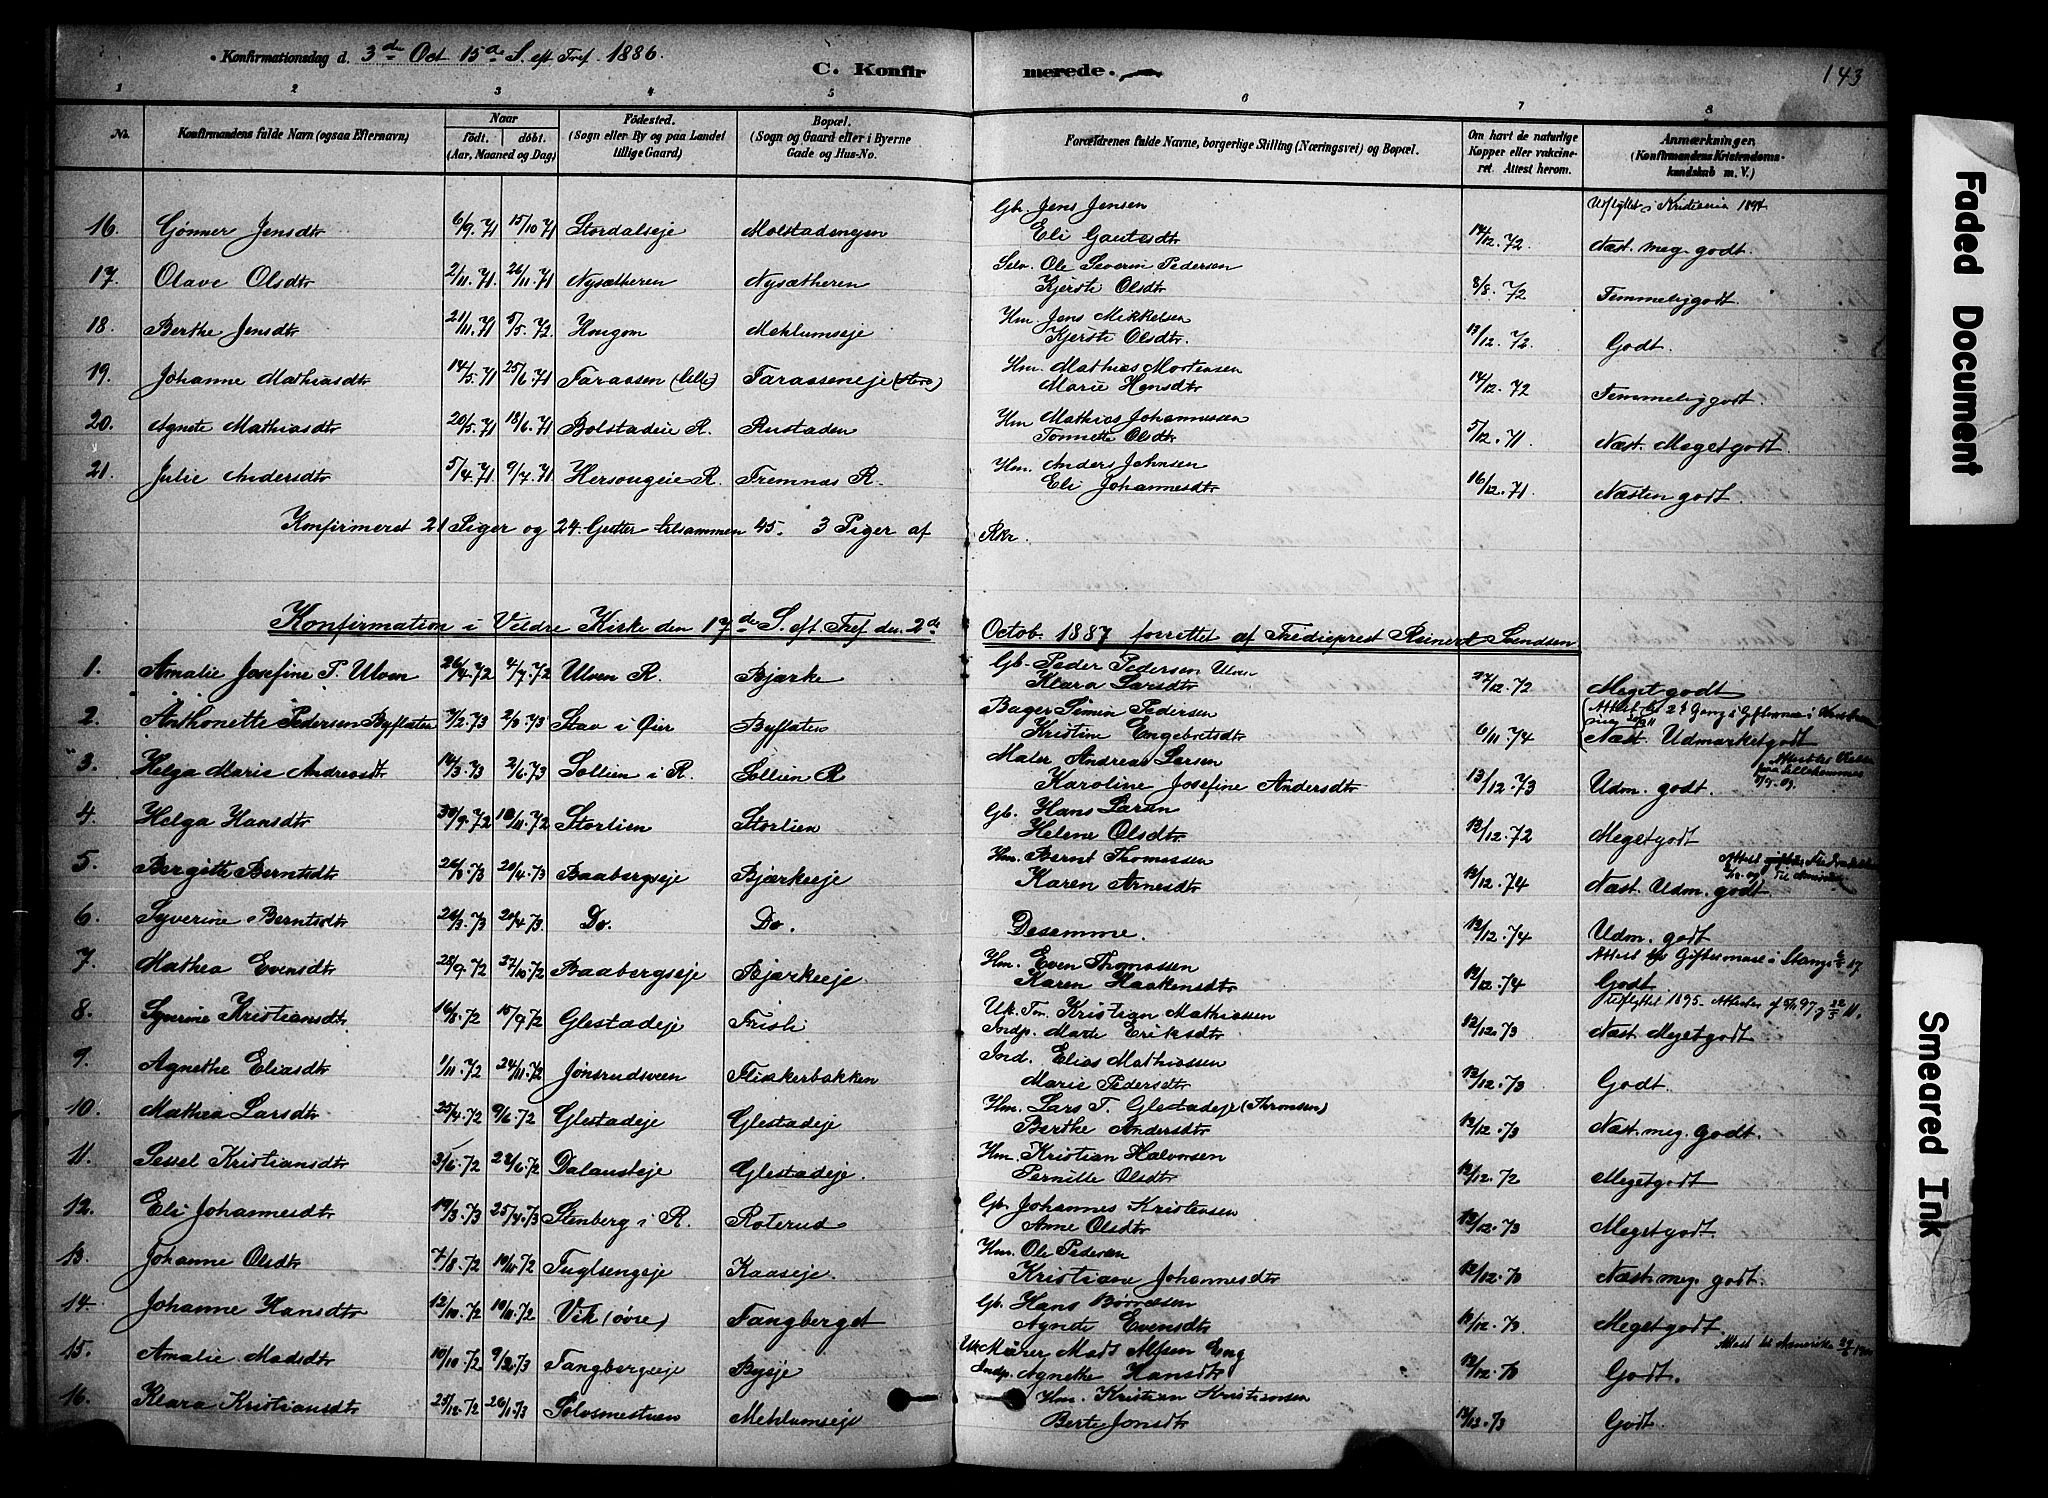 Konfirmationsdag d. 3de Oct 15de S. eft Tref. 1886.
C. Konfirmerede.
143
1 2 3 4 5 6 7 8
No. Konfirmandens fulde Navn (ogsaa Efternavn) Naar født. døbt. (Aar, Maaned og Dag) Fødested. (Sogn eller By og paa Landet tillige Gaard) Bopæl. (Sogn og Gaard eller i Byerne Gade og Hus-No. Forældrenes fulde Navne, borgerlige Stilling (Næringsvei) og Bopæl. Om havt de naturlige Kopper eller vakcineret. Attest herom. Anmærkninger. (Konfirmandens Kristendomskundskab m. V.)
16. Gønner Jensdtr 6/9.71 15/10.71 Stordalseje Molstadengen Gb. Jens Jensen Eli Gautesdtr 14/12.72 Udflyttet i Kristiania 1894 Næst. meg. godt.
17. Olave Olsdtr 2/11.71. 26/11.71 Nysætheren Nysætheren Selv. Ole Severin Pedersen Kjersti Olsdtr 8/8.72 Temmeliggodt.
18. Berthe Jensdtr 21/11.71 5/5.72. Hougom Mehlumseje Hm. Jens Mikkelsen Kjersti Olsdtr. 13/12.72 Godt.
19. Johanne Mathiasdtr 14/5.71 25/6.71 Farassen (lille) Farasseneje (store) Hm. Mathias Mortensen Marie Hansdtr 14/12.72 Temmeliggodt.
20. Agnete Mathiasdtr 20/5.71 18/6.71 Bolstadeie R. Rustaden Hm Mathias Johannessen Tonnette Olsdtr 5/12.71 Næst. Megetgodt.
21. Julie Andersdtr 5/4.71 9/7.71 Hersougeie R. Fremnas R. Hm. Anders Johnsen Eli Johannesdtr 16/12.71 Næsten godt.
Konfirmeret 21 Piger og 24 Gutter tilsammen 45. 3 Piger af Rkr.
Konfirmation i Veldre Kirke den 17de S. eft. Tref den 2de Octob. 1887 forrettet af Tredieprest Reinert Svendsen
1. Amalie Josefine P. Ulven 26/4.72 4/7.72 Ulven R. Bjærke Gb. Peder Pedersen Ulven Klara Larsdtr 12.72 Megetgodt
2. Anthonette Pedersen Byflaten 7/2.73 2/3.73 Stav i Øier Byflaten Bager Simen Pedersen Kristine Engebretsdtr 6/11.74 Næst. Udmærketgodt
3. Helga Marie Andreasdtr 14/3.73 2/6.73 Sollien i R. Sollien R Maler Andreas Larsen Karoline Josefine Andersdtr 13/12.73 Udm. godt.
4. Helga Hansdtr 30/9.72 10/11.72 Storlien Storlien Gb. Hans Larsen Helene Olsdtr 12/12.72 Megetgodt
5. Bergitte Berntsdtr 26/3.73 20/4.73 Baabergseje Bjærkeeje Hm. Bernt Thomassen Karen Arnesdtr 12/12.74 Næst. Udm. godt.
6. Syverine Berntsdtr 26/3.73 20/4.73 Do. Do. Desamme. 12/12.74 Udm. godt
7. Mathea Evensdtr 28/9.72 27/10.72 Baabergseje Bjærkeeje Hm. Even Thomassen Karen Haakensdtr 12/12.74 Attest Giftermaal i Stange 17 Godt.
8. Syverine Kristiansdtr 16/8.72 15/9.72 Glestadeje Fristi Uk. Tm. Kristian Mathiassen Indp. Marte Eriksdtr 12/12.73 Udflyttet 1895. Næst. Megetgodt
9. Agnethe Eliasdtr 1/11.72 24/11.72 Jønsrudsveen Fliskerbakken Ind. Elias Mathiassen Marie Pedersdtr 12/12.73 Godt.
10. Mathea Larsdtr 25/4.72 9/6.72 Glestadeje Glestadeje Hm. Lars T. Glestadeje (Thronsen) Berthe Andersdtr 12/12.73 Næst. meg. godt.
11. Sevel Kristiansdtr 3/6.72 22/6.72 Glestadeje. Hm. Kristian Halvorsen Pernille Olsdtr 12/12.72 Megetgodt
12. Eli Johannesdtr 19/3.73 25/4.73 Stenberg i R. Roterud Gb. Johannes Kristensen Anne Olsdtr 12/12.73 Megetgodt.
13. Johanne Olsdtr 7/8.72 10/11.72 Fuglsengeje Kaaseje. Hm. Ole Pedersen Kristiane Johannesdtr 12/12.70 Næst. meg. godt.
14. Johanne Hansdtr 12/10.72 10/11.72 Vik (øvre) Fangberget Gb. Hans Børresen Agnete Evensdtr 12/12.70 Megetgodt.
15. Amalie Madsdtr 10/10.72 9/2.73 Fangbergseje Byeje Uk Murer Mads Alfsen Eng Indp. Agnethe Hansdtr 12/12.70 Attest til Amerika Godt.
16. Klara Kristiansdtr 25/12.72 26/1.73 Mehlumseje Hm. Kristian Kristiansen Berte Jonsdtr 12/12.73 Godt.
Faded Document
Smeared Ink